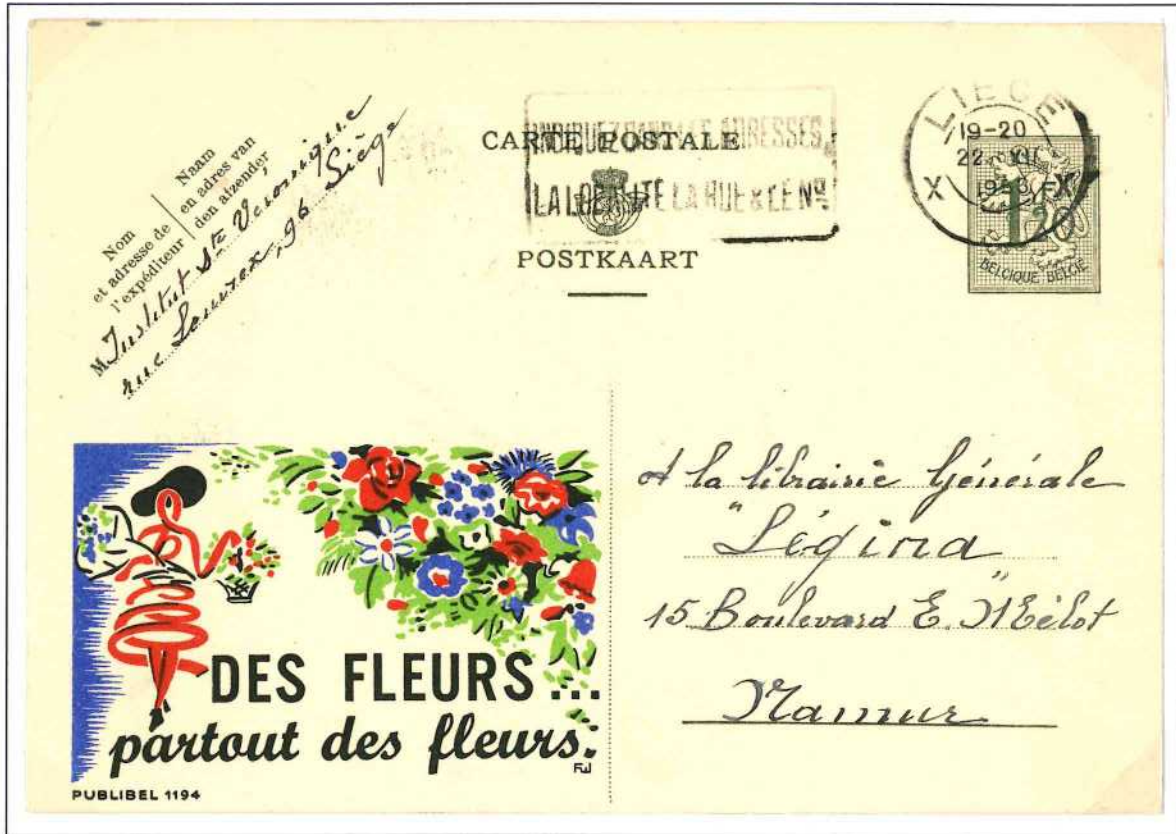 Nom
et adresse de
l'expéditeur
Naam
en adres van
den afzender
M Institut Ste Véronique
rue Louvrex, 96 Liège
CARTE POSTALE
POSTKAART
INDIQUEZ DANS LES ADRESSES
LA LOCALITE LA RUE & LE Nº
LIEGE
X X
19-20
22 XII
19
1F20
BELGIQUE BELGIË
A la librairie Générale
"Légina"
15 Boulevard E. Mélot
Namur
DES FLEURS...
partout des fleurs.
FW
PUBLIBEL 1194